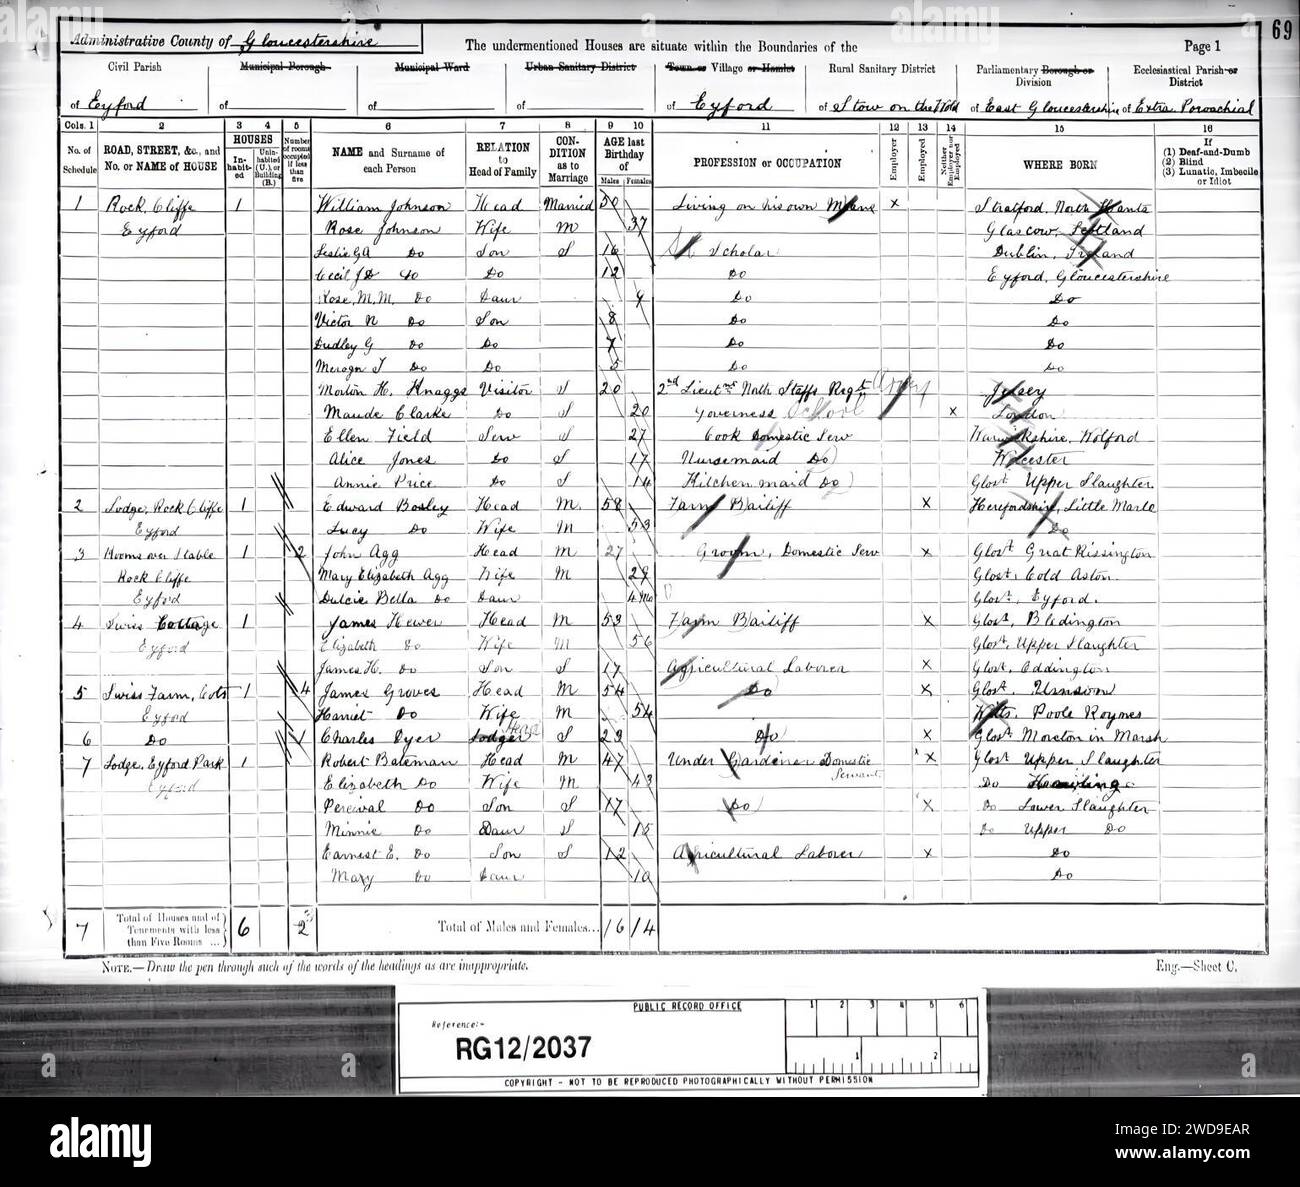 69
Administrative County of Gloucestershire
The undermentioned Houses are situate within the Boundaries of the
Page 1
Civil Parish Municipal Borough Municipal Ward Urban Sanitary District Town or Village or Hamlet Rural Sanitary District Parliamentary Borough or Division Ecclesiastical Parish or District
of Eyford of of of of Eyford of Stow on the Wold of East Gloucestershire of Extra Parochial
Cols. 1 2 3 4 5 6 7 8 9 10 11 12 13 14 15 16
No. of Schedule ROAD, STREET, &c., and No. or NAME of HOUSE HOUSES Inhabited Uninhabited (U.), or Building (B.) Number of rooms occupied if less than five NAME and Surname of each Person RELATION to Head of Family CONDITION as to Marriage AGE last Birthday of Males Females PROFESSION or OCCUPATION Employer Employed Neither Employer nor Employed WHERE BORN If (1) Deaf-and-Dumb (2) Blind (3) Lunatic, Imbecile or Idiot
1 Rock Cliffe 1 William Johnson Head Married 50 Living on his own Means x Stratford, North Hants
Eyford Rose Johnson Wife M 37 Glascow, Scotland
Leslie G A Do Son S 16 Scholar Dublin, Ireland
Cecil J D Do Do 12 Do Eyford, Gloucestershire
Rose, M.M. Do Daur 9 Do Do
Victor N Do Son 8 Do Do
Dudley G Do Do 7 Do Do
T Do Do 5 Do Do
Morton H. Knaggs Visitor S 20 2nd Lieutnt North Staffs Regt Army Jersey
Maude Clarke Do S 20 Governess School x London
Ellen Field Serv S 27 Cook Domestic Serv Warwikshire, Wolford
Alice Jones Do S 17 Nursemaid Do Worcester
Annie Price Do S 14 Kitchenmaid Do Glost Upper Slaughter
2 Lodge, Rock Cliffe 1 Edward Bosley Head M. 58 Farm Bailiff x Herefordshire, Little Marle
Eyford Lucy Do Wife M 53 Do
3 Rooms over Stable 1 2 John Agg Head M 27 Groom, Domestic Serv x Glost Great Rissington
Rock Cliffe Mary Elizabeth Agg Wife M 29 Glost, Cold Aston.
Eyford Dulcie Bella Do Daur 4 mo Glost, Eyford.
4 Swiss Cottage 1 James Hewer Head M 53 Farm Bailiff x Glost, Bledington
Eyford Elizabeth Do Wife M 56 Glost, Upper Slaughter
James H. Do Son S 17 Agricultural Laborer x Glost, Oddington
5 Swiss Farm, Cots 1 4 James Groves Head M 54 Do x Glost,
Eyford Harriet Do Wife M 54 Wilts, Poole Roymes
6 Do 1 Charles Dyer Lodger Head S 23 Do x Glost Moreton in Marsh
7 Lodge, Eyford Park 1 Robert Bateman Head M 47 Under Gardener Domestic Servant x Glost Upper Slaughter
Eyford Elizabeth Do Wife M 43 Do
Percival Do Son S 17 Do x Do Lower Slaughter
Minnie Do Daur S 15 Do Upper Do
Earnest E. Do Son S 12 Agricultural Laborer x Do
Mary Do Daur 10 Do
7 Total of Houses and of Tenements with less than Five Rooms ... 6 2 3 Total of Males and Females... 16 14
NOTE.—Draw the pen through such of the words of the headings as are inappropriate.
Eng.—Sheet C.
PUBLIC RECORD OFFICE
1 2 3 4 5 6
Reference:-
RG12/2037
1 2
COPYRIGHT - NOT TO BE REPRODUCED PHOTOGRAPHICALLY WITHOUT PERMISSION
alamy
Image ID: 2WD9EAR
www.alamy.com